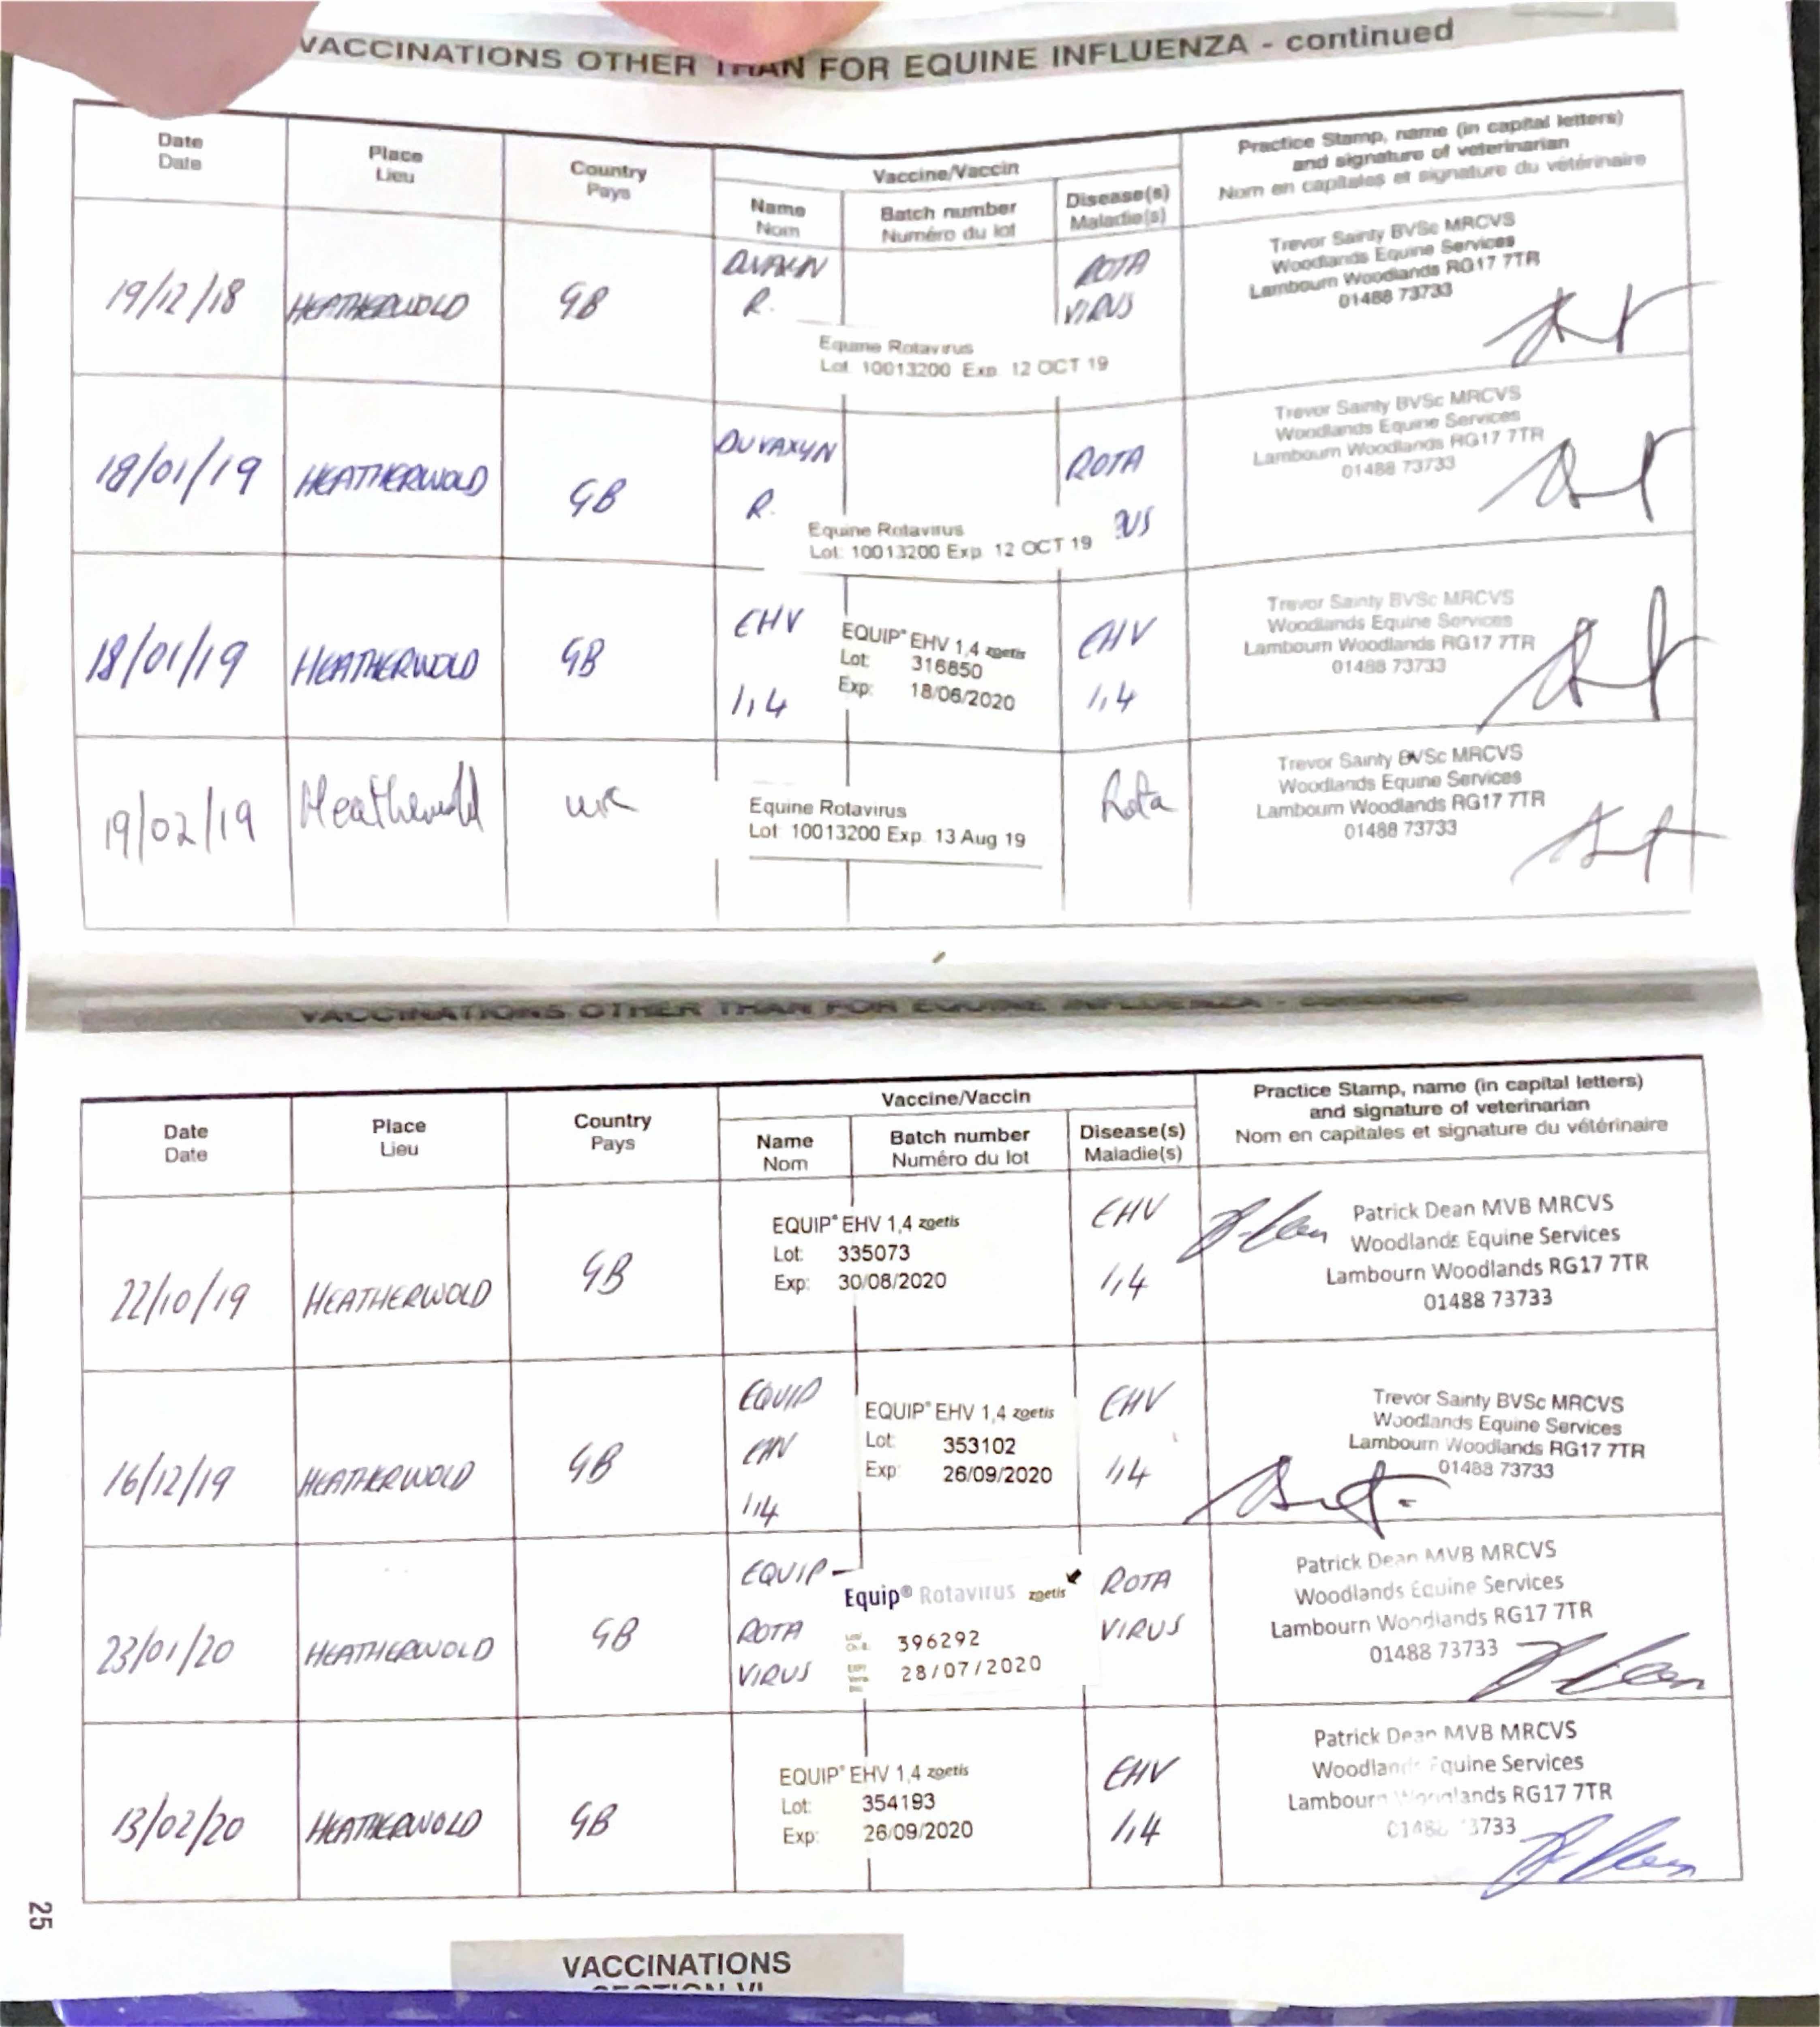 VACCINATIONS OTHER THAN FOR EQUINE INFLUENZA - continued
Date
Date
Place
Lieu
Country
Pays
Vaccine/Vaccin
Name
Nom
Batch number
Numéro du lot
Disease(s)
Maladie(s)
Practice Stamp, name (in capital letters)
and signature of veterinarian
Nom en capitales et signature du vétérinaire
19/12/18
HEATHERWOLD
GB
R.
Equine Rotavirus
Lot: 10013200 Exp. 12 OCT 19
ROTA
VIRUS
Trevor Sainty BVSc MRCVS
Woodlands Equine Services
Lambourn Woodlands RG17 7TR
01488 73733
18/01/19
HEATHERWOLD
GB
DUVAXYN
R.
Equine Rotavirus
Lot: 10013200 Exp. 12 OCT 19
ROTA
US
Trevor Sainty BVSc MRCVS
Woodlands Equine Services
Lambourn Woodlands RG17 7TR
01488 73733
18/01/19
HEATHERWOLD
GB
EHV
1,4
EQUIP® EHV 1,4 zoetis
Lot: 316850
Exp: 18/06/2020
EHV
1,4
Trevor Sainty BVSc MRCVS
Woodlands Equine Services
Lambourn Woodlands RG17 7TR
01488 73733
19/02/19
Heatherwold
UK
Equine Rotavirus
Lot: 10013200 Exp. 13 Aug 19
Rota
Trevor Sainty BVSc MRCVS
Woodlands Equine Services
Lambourn Woodlands RG17 7TR
01488 73733
VACCINATIONS OTHER THAN FOR EQUINE INFLUENZA - continued
Date
Date
Place
Lieu
Country
Pays
Vaccine/Vaccin
Name
Nom
Batch number
Numéro du lot
Disease(s)
Maladie(s)
Practice Stamp, name (in capital letters)
and signature of veterinarian
Nom en capitales et signature du vétérinaire
22/10/19
HEATHERWOLD
GB
EQUIP® EHV 1,4 zoetis
Lot: 335073
Exp: 30/08/2020
EHV
1,4
Patrick Dean MVB MRCVS
Woodlands Equine Services
Lambourn Woodlands RG17 7TR
01488 73733
16/12/19
HEATHERWOLD
GB
EQUIP
EHV
1,4
EQUIP® EHV 1,4 zoetis
Lot: 353102
Exp: 26/09/2020
EHV
1,4
Trevor Sainty BVSc MRCVS
Woodlands Equine Services
Lambourn Woodlands RG17 7TR
01488 73733
23/01/20
HEATHERWOLD
GB
EQUIP
ROTA
VIRUS
Equip® Rotavirus zoetis
396292
28/07/2020
ROTA
VIRUS
Patrick Dean MVB MRCVS
Woodlands Equine Services
Lambourn Woodlands RG17 7TR
01488 73733
13/02/20
HEATHERWOLD
GB
EQUIP® EHV 1,4 zoetis
Lot: 354193
Exp: 26/09/2020
EHV
1,4
Patrick Dean MVB MRCVS
Woodlands Equine Services
Lambourn Woodlands RG17 7TR
01488 73733
25
VACCINATIONS
SECTION VI